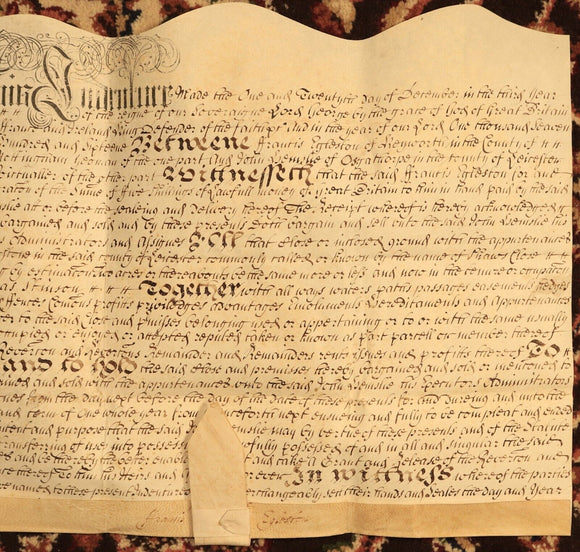 This Indenture Made the One and Twentyth day of December in the third Year
of the reigne of our Soveraigne Lord George by the grace of God of Great Britain
France and Ireland King Defender of the faith &c And in the year of our Lord One thousand seaven
hundred and sixteene Betweene Francis Egleston of Keyworth in the County of
Nottingham Yeoman of the one part And John of Osgathorpe in the County of Leicester
Victualler of the other part Wittnesseth that the said Francis Egleston for and
in consideration of the Summe of five Shillings of Lawfull money of Great Britain to him in hand paid by the said
att or before the sealing and delivery hereof The Receipt whereof is hereby acknowledged
bargained and sold and by these presents doth bargain and sell unto the said John his
Administrators and Assignes All that close or inclosed ground with the appurtenances
in the said County of Leicester commonly called or known by the name of Close
by estimation two acres or thereabouts be the same more or less and now in the tenure or occupation
Together with all ways waters paths passages easements hedges
ffences Comons profitts priviledges advantages Emoluments Hereditaments and Appurtenances
to the said Close and premisses belonging used or appertaining or to or with the same usually
occupied or enjoyed accepted reputed taken or known as part parcell or member thereof
Reverton and Revertons Remainder and Remainders rents Issues and profitts thereof To
have and to hold the said close and premisses hereby bargained and sold or mentioned to
bargained and sold with the appurtenances unto the said John his Executors Administrators
from the day next before the day of the date of these presents for and during and unto the
end and term of One whole year from thenceforth next ensuing and fully to be compleat and ended
intent and purpose that the said may by vertue of these presents and of the Statute
transferring of uses into possession fully possessed of and in all and singular the said
and be thereby the better enabled and take a Grant and Release of the Reverton and
thereof To him his Heirs and for ever In Wittness whereof the parties
above named to these present Indentures have interchangeably sett their Hands and Seales the day and Year
Francis Egleston